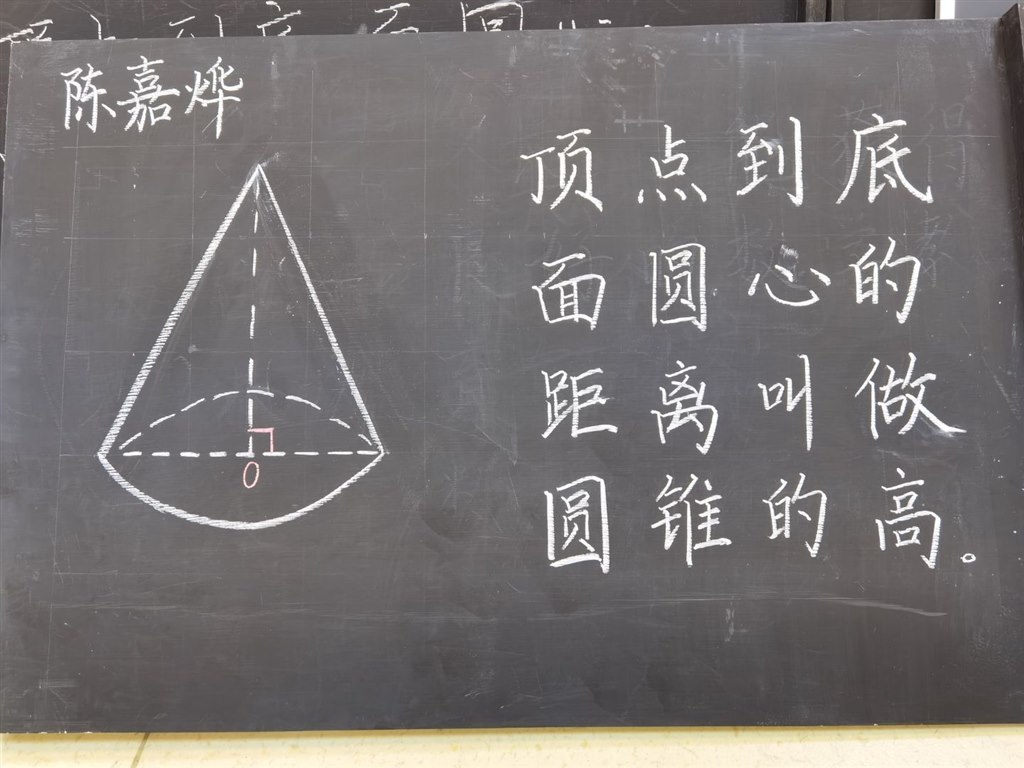 陈嘉烨
顶点到底
面圆心的
距离叫做
圆锥的高。
O